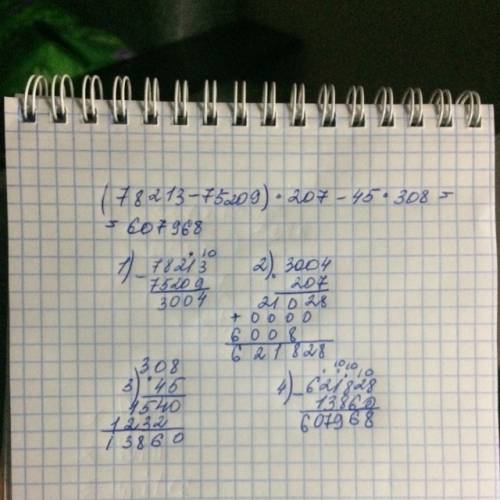 (78213-75209)·207-45·308=
=607968
1) -78213
75209
3004
2) 3004
·207
21028
+0000
6008
621828
3) 308
·45
1540
1232
13860
4) -621828
13860
607968